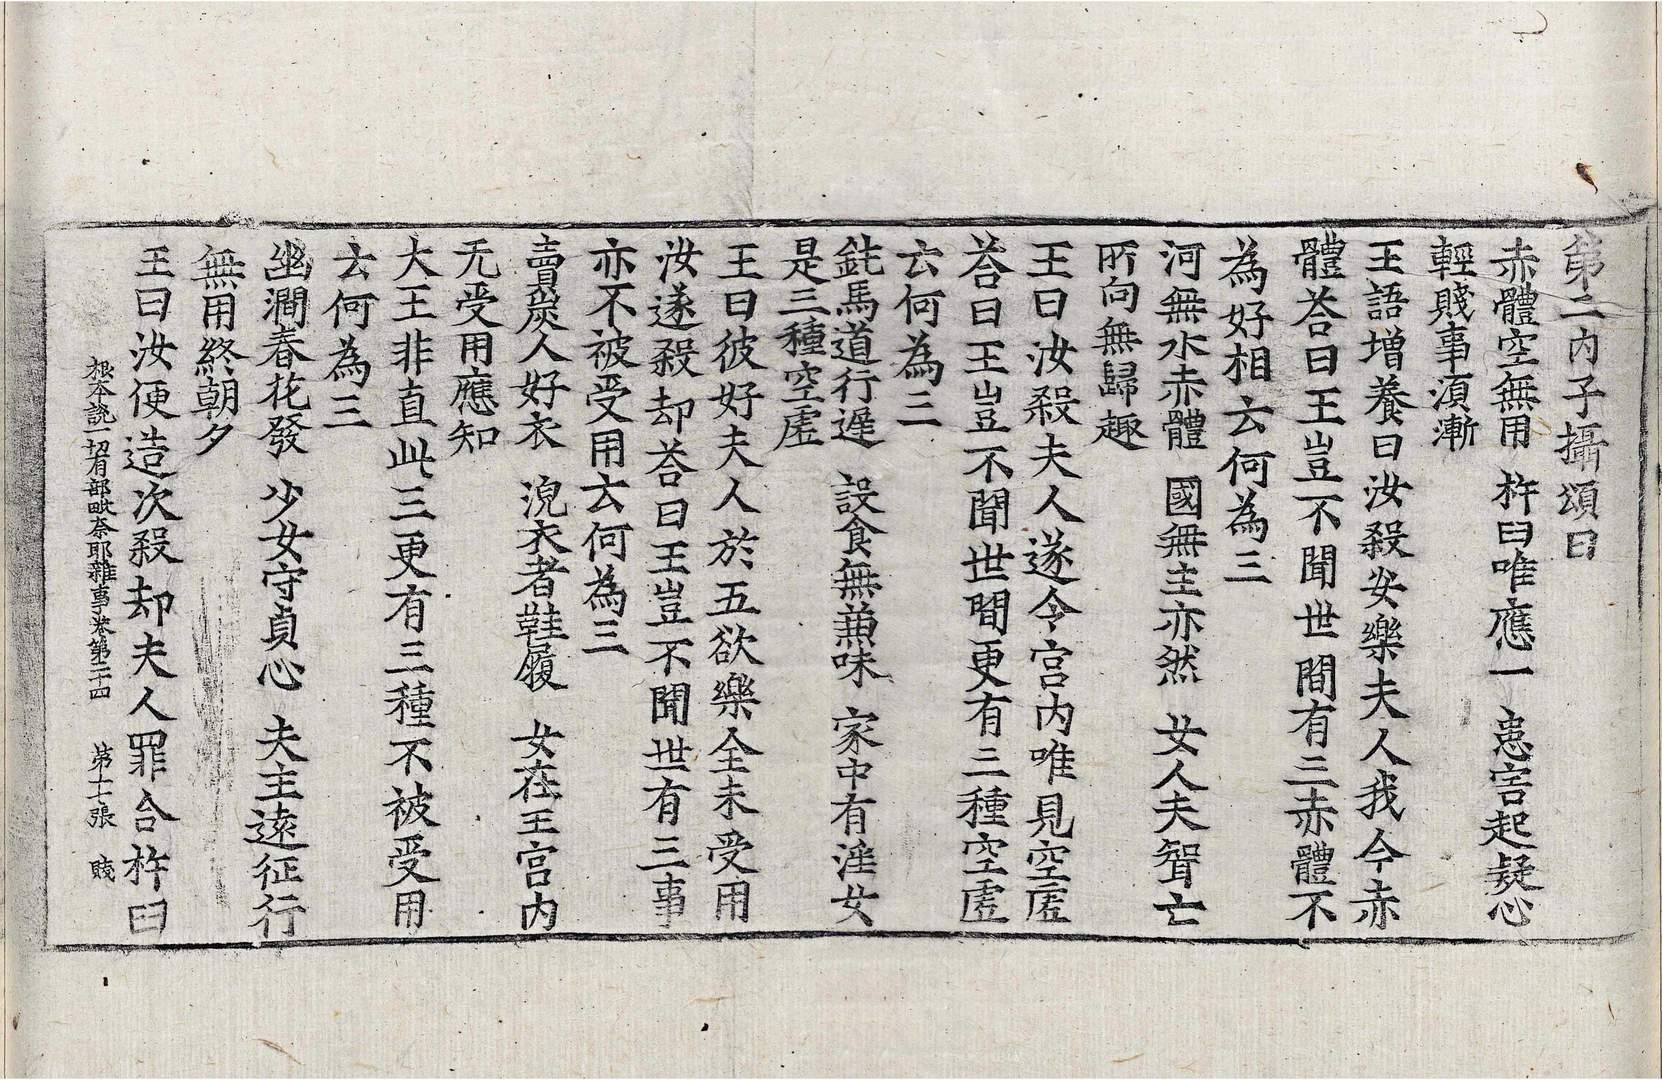 第二內子攝頌曰
赤體空無用 杵臼唯應一 恖害起疑心
輕賤事須漸
王語增養曰汝殺安樂夫人我今赤
體荅曰王豈不聞世間有三赤體不
為好相云何為三
河無水赤體 國無主亦然 女人夫聟亡
所向無歸趣
王曰汝殺夫人遂令宮內唯見空虛
荅曰王豈不聞世間更有三種空虛
云何為三
鈍馬道行遲 設食無兼味 家中有婬女
是三種空虛
王曰彼好夫人於五欲樂全未受用
汝遂殺却荅曰王豈不聞世有三事
亦不被受用云何為三
賣炭人好衣 浣衣者鞋履 女在王宮內
无受用應知
大王非直此三更有三種不被受用
云何為三
幽澗春花發 少女守貞心 夫主遠征行
無用終朝夕
王曰汝便造次殺却夫人罪合杵臼
根本說一切有部毗奈耶雜事卷第二十四 第十七張 賤